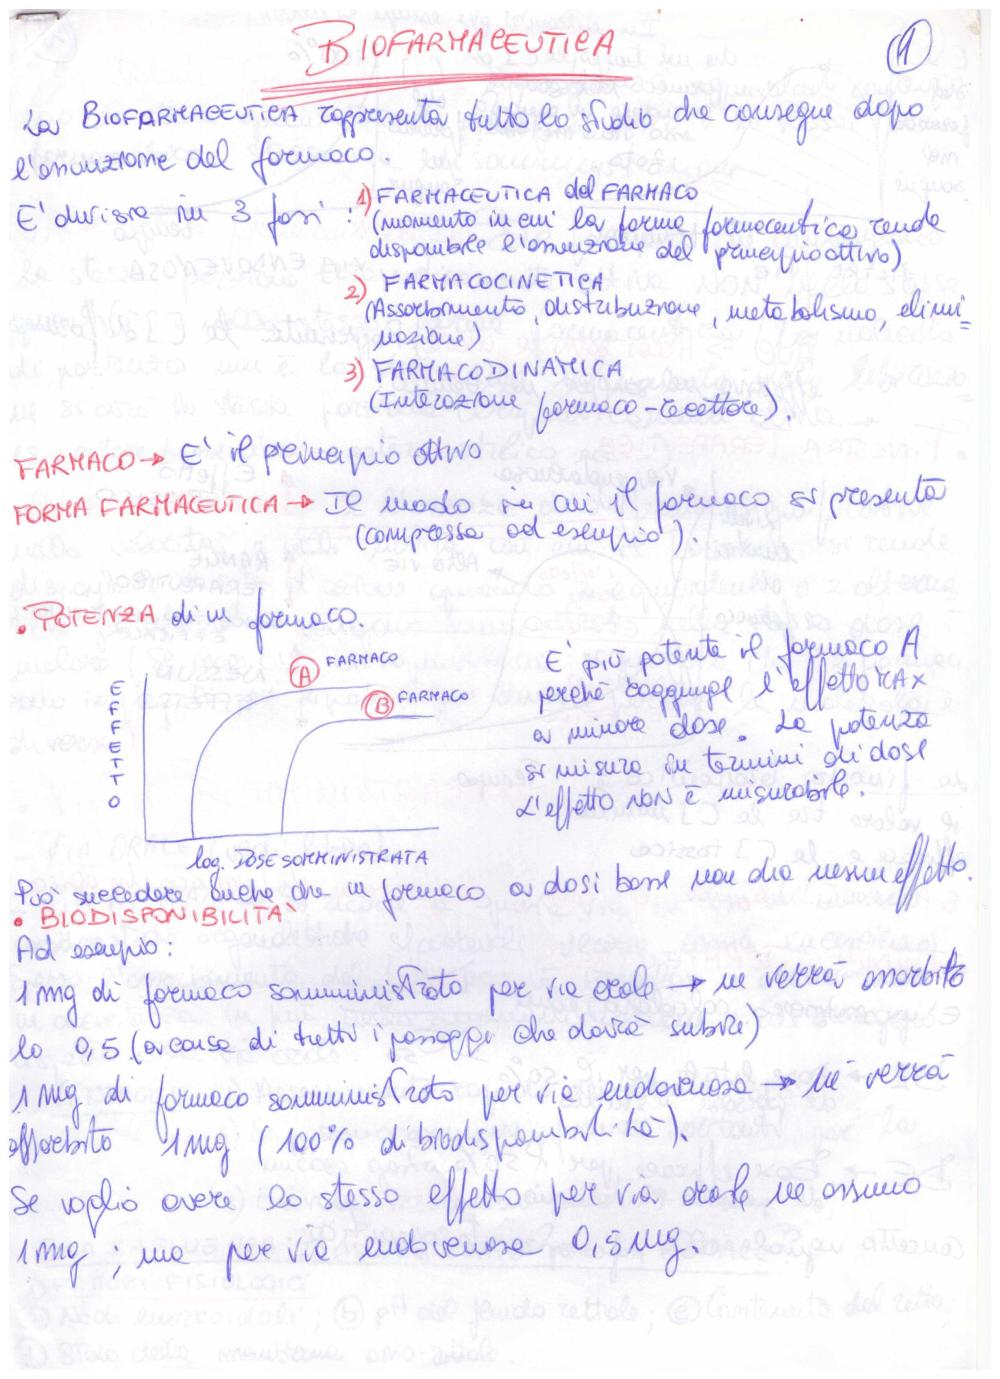 BIOFARMACEUTICA
1
La BIOFARMACEUTICA rappresenta tutto lo studio che consegue dopo
l'assunzione del farmaco.
E' divisa in 3 fasi :
1) FARMACEUTICA del FARMACO
(momento in cui la forma farmaceutica rende
disponibile l'assunzione del principio attivo)
2) FARMACOCINETICA
(Assorbimento, distribuzione, metabolismo, elimi=
nazione)
3) FARMACODINAMICA
(Interazione farmaco-recettore).
FARMACO → E' il principio attivo
FORMA FARMACEUTICA → Il modo in cui il farmaco si presenta
(compressa ad esempio).
• POTENZA di un farmaco.
EFFETTO
A FARMACO
B FARMACO
log. DOSE SOMMINISTRATA
E' più potente il farmaco A
perché raggiunge l'effetto MAX
a minore dose. La potenza
si misura in termini di dose
L'effetto non è misurabile.
Può succedere anche che un farmaco a dosi basse non dia nessun effetto.
• BIODISPONIBILITA'
Ad esempio:
1 mg di farmaco somministrato per via orale → ne verrà assorbito
lo 0,5 (a causa di tutti i passaggi che dovrà subire)
1 mg di farmaco somministrato per via endovenosa → ne verrà
assorbito 1 mg (100% di biodisponibilità).
Se voglio avere lo stesso effetto per via orale ne assumo
1 mg ; ma per via endovenosa 0,5 mg.